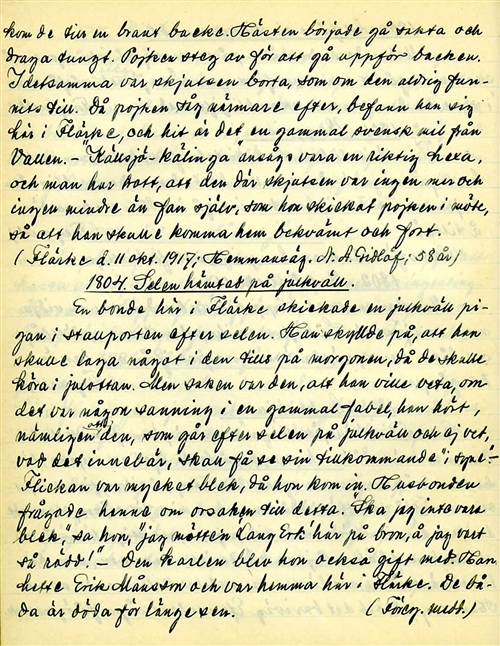 kom de till en brant backe. Hästen började gå sakta och
draga tungt. Pojken steg av för att gå uppför backen.
I detsamma var skjutsen borta, som om den aldrig fun-
nits till. Då pojken såg närmare efter, befann han sig
här i Flärke, och hit är det en gammal svensk mil från
Vallen. – "Källsjö-kälinga" ansågs vara en riktig hexa,
och man har trott, att den där skjutsen var ingen mer och
ingen mindre än fan själv, som hon skickat pojken i möte,
så att han skulle komma hem bekvämt och fort.
(Flärke d. 11 okt. 1917; Hemmansäg. N. A. Eidlöf; 58 år)
1804. Selen hämtad på julkväll.
En bonde här i Flärke skickade en julkväll pi-
gan i stallporten efter selen. Han skyllde på, att han
skulle laga något i den tills på morgonen, då de skulle
köra i julottan. Men saken var den, att han ville veta, om
det var någon sanning i en gammal fabel, han hört,
nämligen att "den, som går efter selen på julkväll och ej vet,
vad det innebär, skall få se sin tillkommande" i syne". –
Flickan var mycket blek, då hon kom in. Husbonden
frågade henne om orsaken till detta. "Ska jag int vara
blek," sa hon, "jäg mötte'n 'Lang Erk' här på bron, å jag vart
så rädd!" – Den karlen blev hon också gift med. Han
hette Erik Månsson och var hemma här i Flärke. De bå-
da är döda för länge sen. (Föreg. medd.)